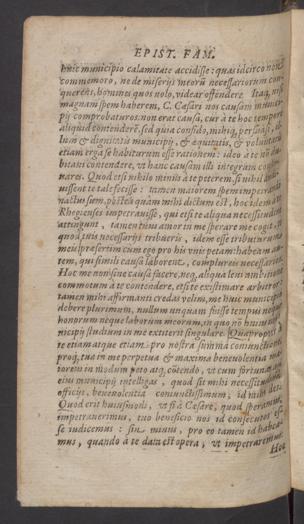 EPIST. FAM.
huic municipio calamitate accidisse: quas idcirco non
commemoro, ne de miserijs meorū necessariorum con-
querens, homines quos nolo, videar offendere. Itaq, nisi
magnam spem haberem, C. Cæsari nos causam munici-
pij comprobaturos: non erat causa, cur à te hoc tempore
aliquid contenderē. sed quia confido, mihiq, persuasi, il-
lum & dignitatis municipij, & æquitatis, & voluntatis
etiam erga se habiturum esse rationem: ideo à te nō du-
bitaui contendere, vt hanc causam illi integram conser-
uares. Quod etsi nihilo minùs à te peterem, si nihil audi-
uissent te tale fecisse: tamen maiorem spem impetrandi
nactus sum, posteà quàm mihi dictum est, hoc idem à te
Rhegienses impetrauisse, qui etsi te aliqua necessitudine
attingunt, tamen tuus amor in me sperare me cogit, te,
quod tuis necessarijs tribueris, idem esse tributurum
meis, præsertim cum ego pro his vnis petam: habeam au-
tem, qui simili causa laborent, complureis necessarios.
Hoc me non sine causa facere, neq, aliqua leui ambitione
commotum à te contendere, etsi te existimare arbitror:
tamen mihi affirmanti credas velim, me huic municipio
debere plurimum, nullum vnquam fuisse tempus neque
honorum neque laborum meorum, in quo nō huius mu-
nicipij studium in me extiterit singulare. Quapropter à
te etiam atque etiam pro nostra summa coniunctione,
proq, tua in me perpetua & maxima beneuolentia ma-
iorem in modum peto atq, cōtendo, vt cum fortunas agi
eius municipij intelligas, quod sit mihi necessitudine,
officijs, beneuolentia coniunctissimum, id mihi des.
Quod erit huiusmodi, vt si à Cæsare, quod speramus,
impetrauerimus, tuo beneficio nos id consecutos esse
se iudicemus: sin minus, pro eo tamen id habea-
mus, quando à te data est opera, vt impetraremus.
Hoc